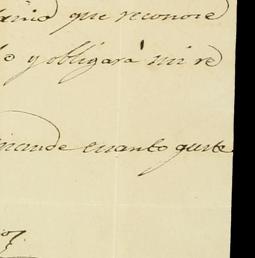 que reconose
o y obligará mi re
mande cuanto guste